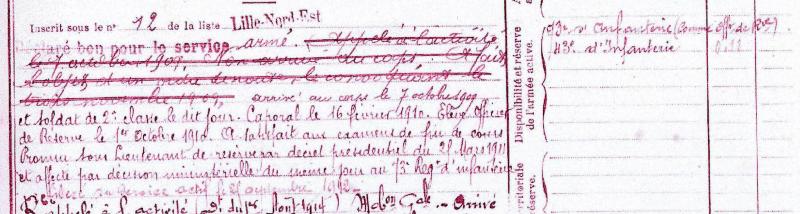 Inscrit sous le n° 12 de la liste Lille-Nord-Est
Déclaré bon pour le service armé. Appelé à l'activité
le 7 octobre 1909. Non arrivé au corps. A fait
l'objet
novembre 1909, arrivé au corps le 7 octobre 1909
et soldat de 2e classe le dit jour. Caporal le 16 février 1910. Elève Officier
de Réserve le 1er Octobre 1910. A satisfait aux examens de fin de cours
Promu Sous Lieutenant de réserve par décret présidentiel du 28 Mars 1911
et affecté par décision ministérielle du même jour au 73e Régt d'infanterie
au service actif le 25 septembre 1912
Rappelé à l'activité Mobon Gale. Arrivé
Disponibilité et réserve
de l'armée active.
73e d'Infanterie (Comme Offr de Rve)
43e d'Infanterie
territoriale
réserve.